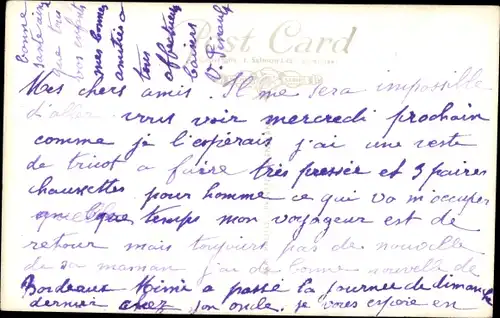 Post Card
Mes chers amis. Il me sera impossible
d'aller vous voir mercredi prochain
comme je l'espérais j'ai une veste
de tricot a faire très pressée et 3 paires
chaussettes pour homme ce qui va m'occuper
quelque temps mon voyageur est de
retour mais toujours pas de nouvelle
de sa maman j'ai de bonne nouvelle de
Bordeaux Mimi a passé la journée de dimanche
dernier chez son oncle. je vous espère en
bonne
santé ainsi
que tous
vos enfants
mes bonnes
amitiés a
tous
affectueux
baisers